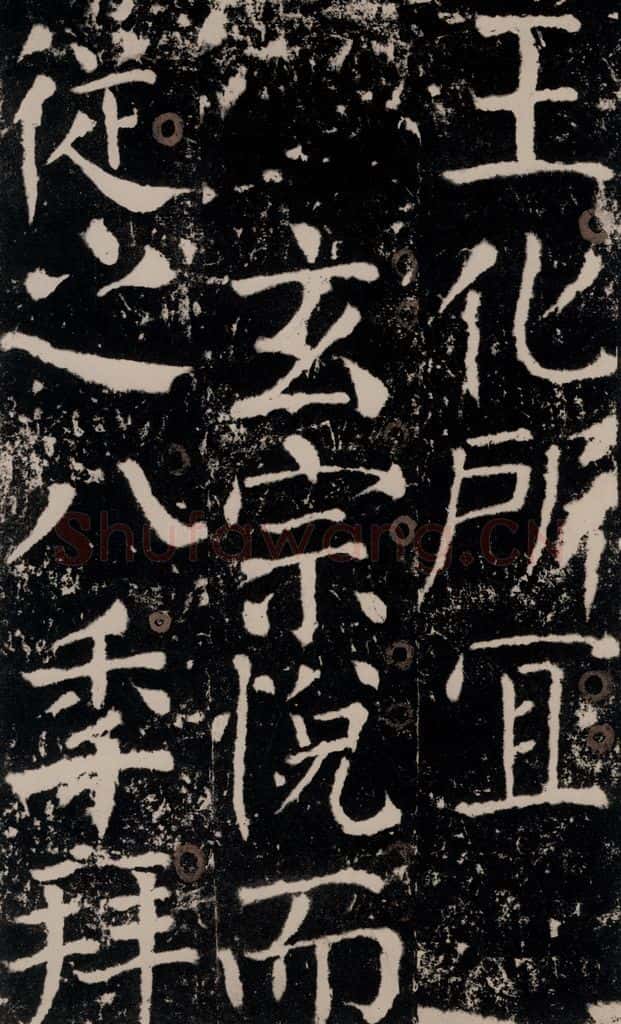 王化所宜
玄宗悅而
從之八秊拜
Shufawang.CN